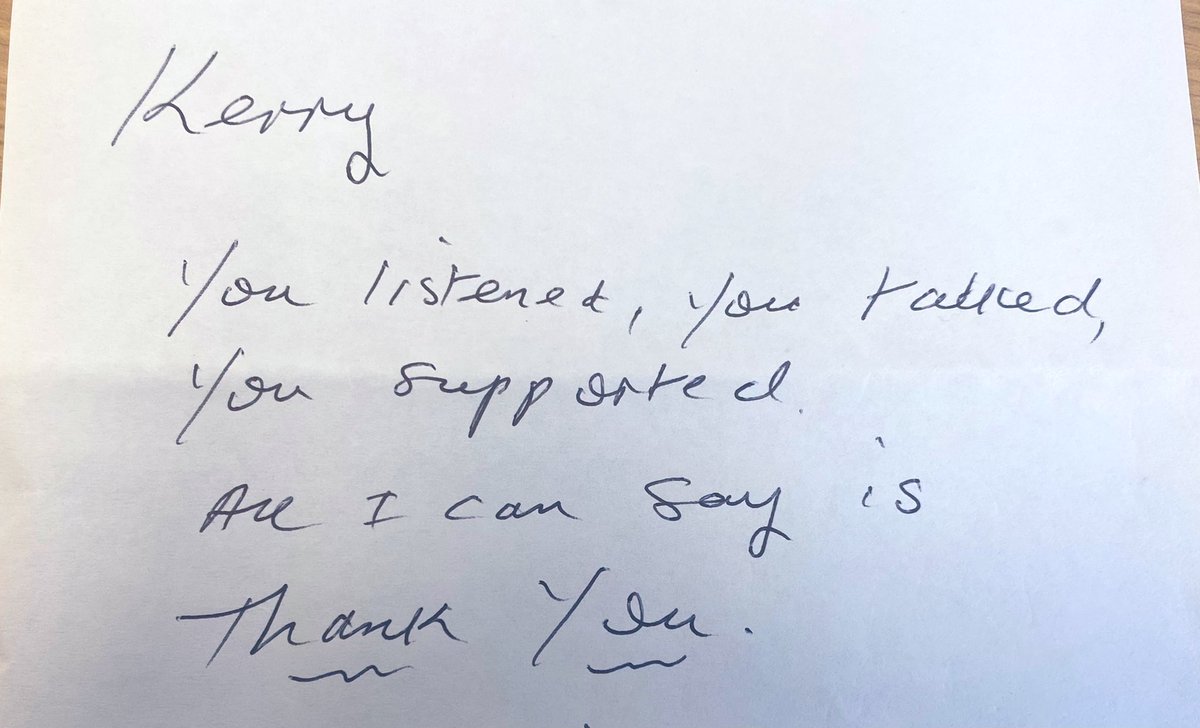 Kerry
You listened, you talked,
You supported.
All I can say is
Thank You.